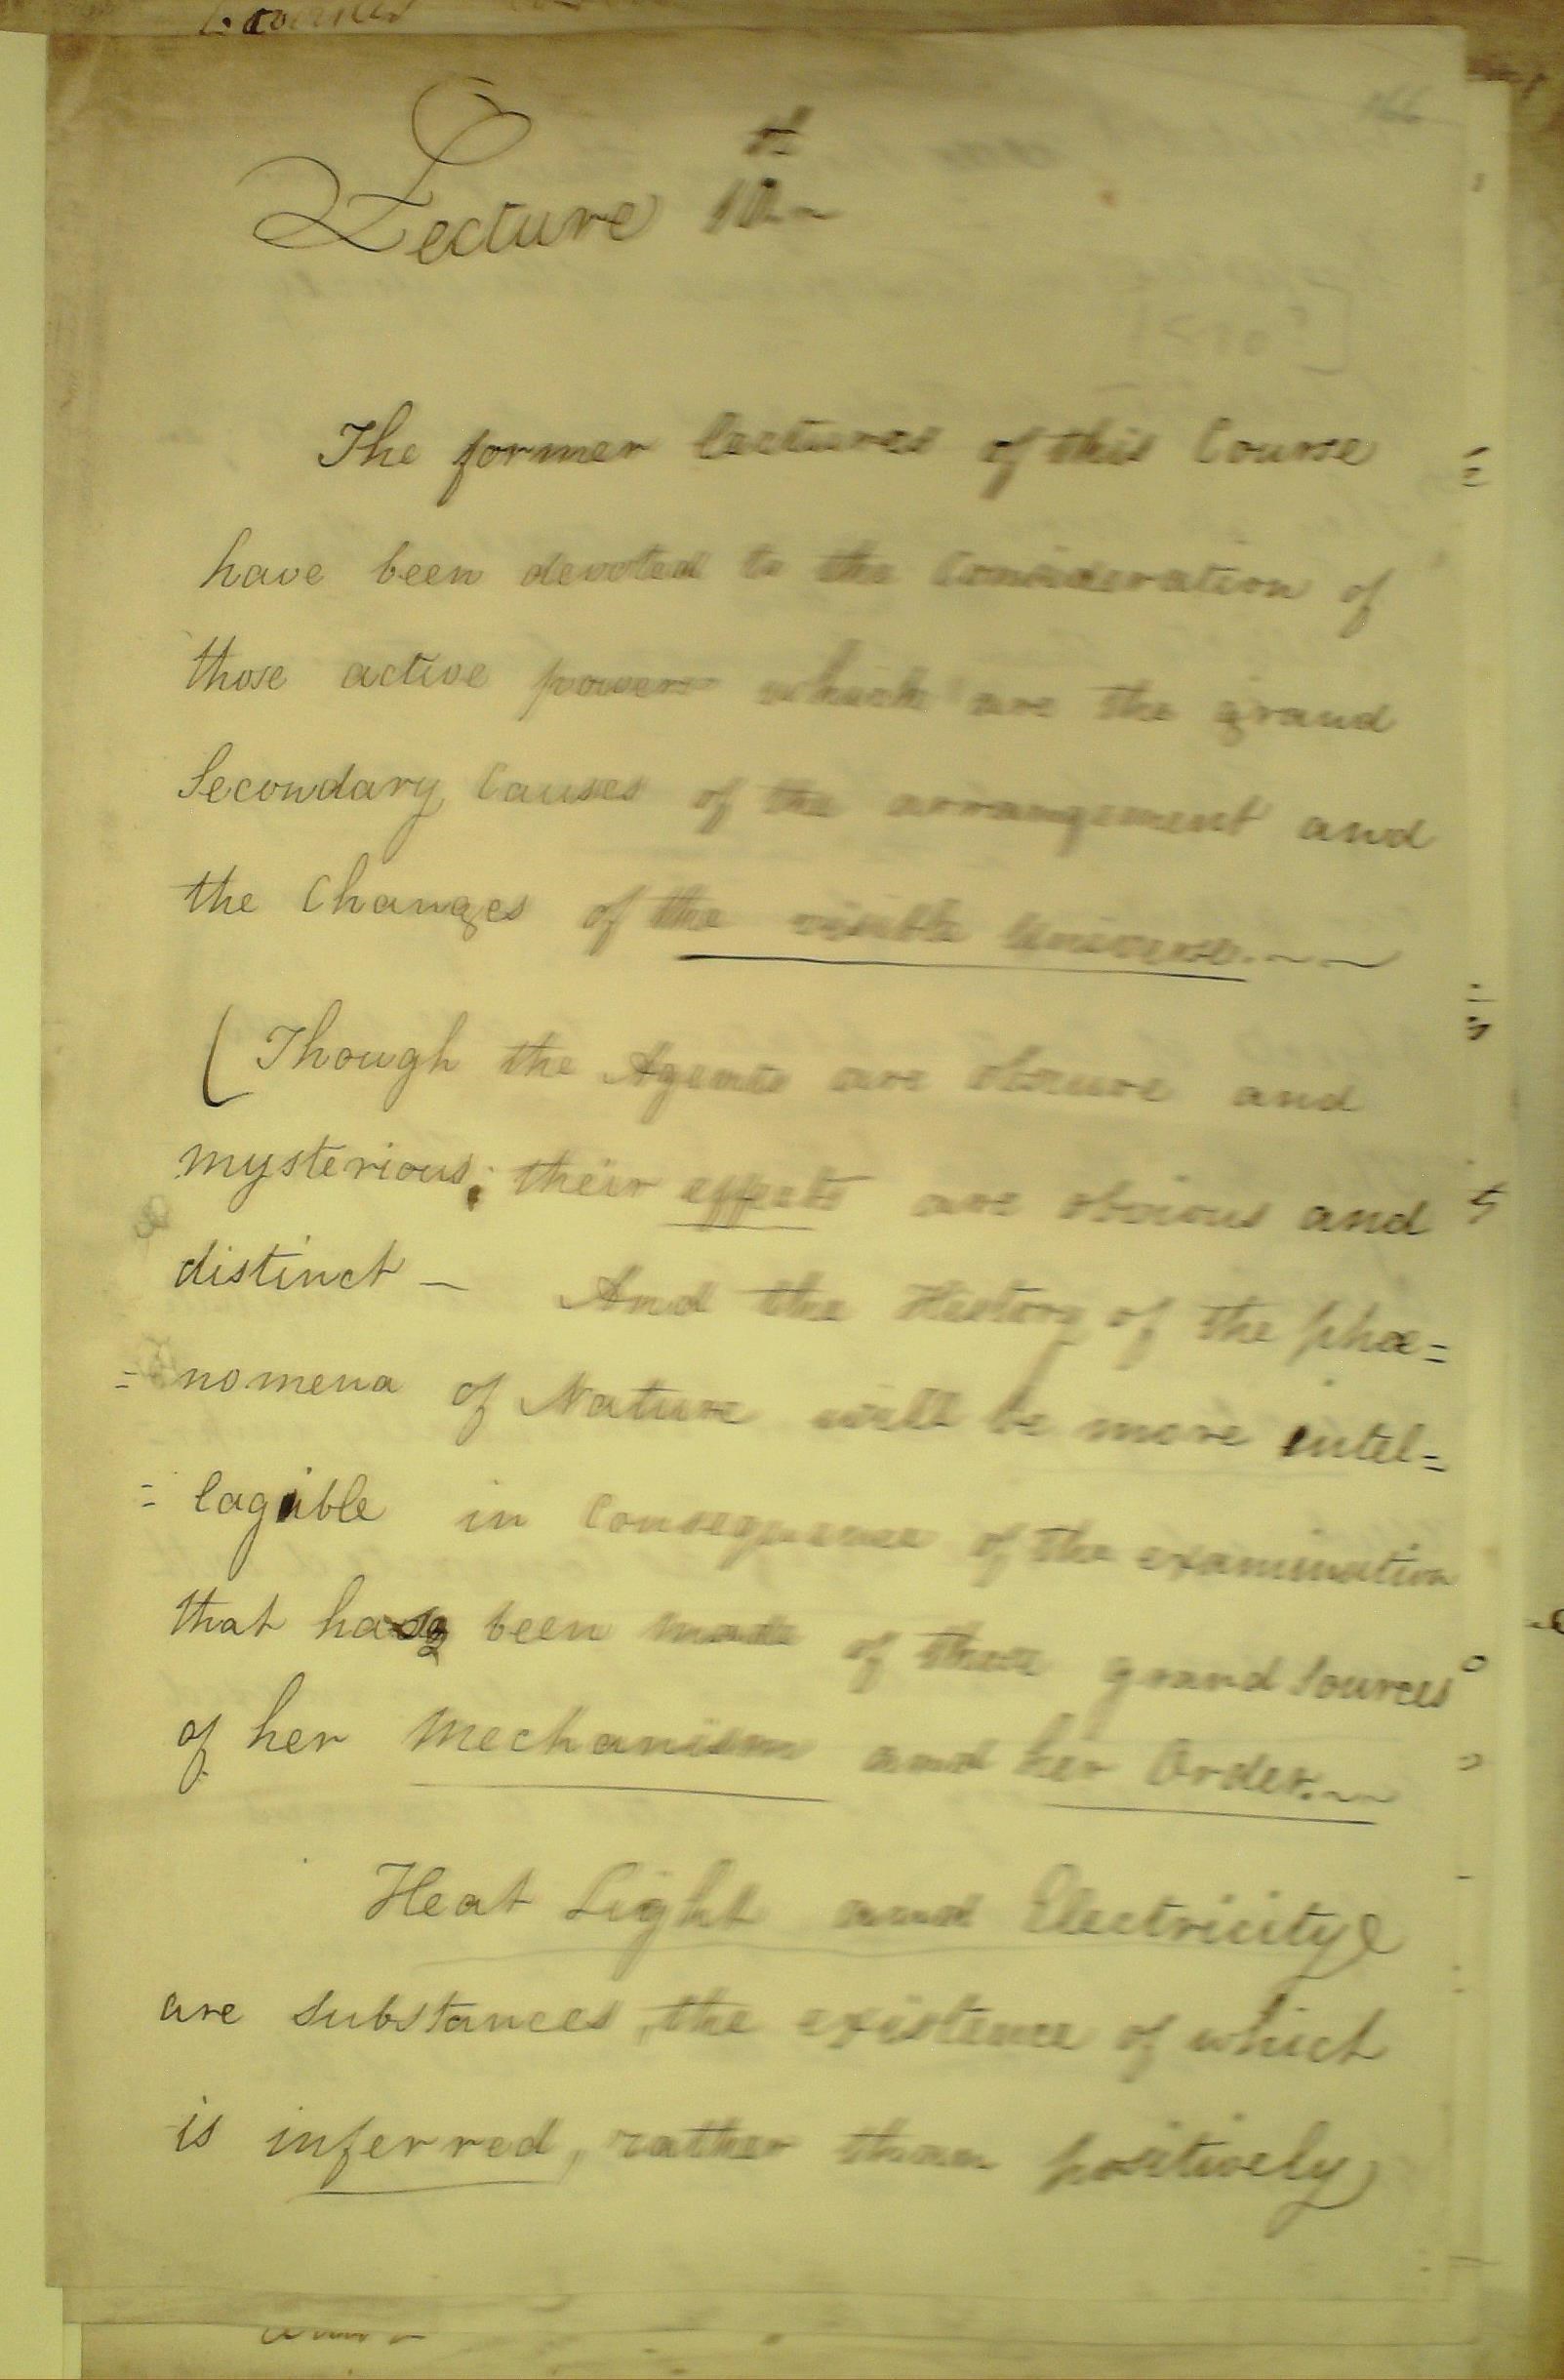 Lecture 10th
The former Lectures of this Course
have been devoted to the Consideration of
those active powers which are the grand
Secondary Causes of the arrangement and
the Changes of the visible Universe.
(Though the Agents are obscure and
mysterious; their effects are obvious and
distinct – And the History of the phœ=
=nomena of Nature will be more intel=
=lagible in Consequence of the examination
that has been made of these grand Sources
of her Mechanism and her Order.
Heat Light and Electricity
are Substances, the existence of which
is inferred, rather than positively